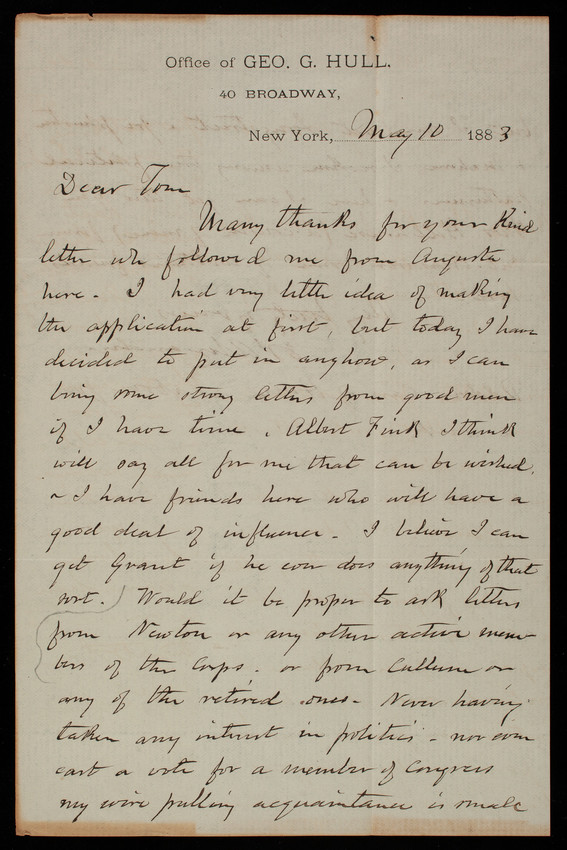 Office of GEO. G. HULL.
40 BROADWAY,
New York, May 10 1883
Dear Tom
Many thanks for your kind
letter wh followed me from Augusta
here - I had very little idea of making
the application at first, but today I have
decided to put in anyhow, as I can
bring some strong letters from good men
if I have time. Albert Fink I think
will say all for me that can be wished.
& I have friends here who will have a
good deal of influence - I believe I can
get Grant if he ever does anything of that
sort.) Would it be proper to ask letters
from Newton or any other active mem-
bers of the Corps - or from Cullum or
any of the retired ones - Never having
taken any interest in politics - nor even
cast a vote for a member of Congress
my wire pulling acquaintance is small